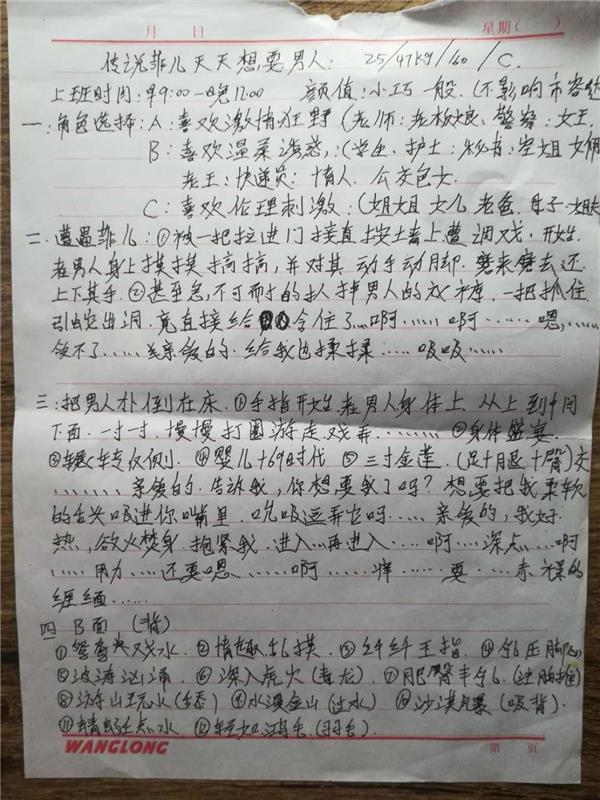 月 日 星期( )
传说菲儿天天想要男人: 25/47kg/160/C.
上班时间:早9:00-晚12:00 颜值:小巧一般.(不影响市容
一:角色选择:A:喜欢激情狂野(老师:老板娘、警察:女王,
B:喜欢温柔诱惑,:(学生、护士:秘书:空姐 女佣
老王:快递员:情人.公交色女.
C:喜欢伦理刺激:(姐姐 女儿 老爸.母子
二、遭遇菲儿:①被一把拉进门 接直按土墙上遭调戏.开始
在男人身上摸摸 搞搞,并对其 动手动脚.蹭来蹭去 还
上下其手.②甚至急,不可耐的 男人的 一把抓住
引蛇出洞.竟直接给 含住了…啊…… 啊…… 嗯,……
受不了……亲爱的.给我也揉揉……吸吸……
三:把男人扑倒在床.①手指开始.在男人身体上、从上到中间
下面.一寸一寸.慢慢打圈游走戏弄……… ②身体盛宴.
③辗转反侧. ④婴儿+69时代 ⑤三寸金莲.(足+月退+臀)交
……… 亲爱的.告诉我,你想要我了吗?想要把我柔软
的舌头吸进你嘴里.吮吸逗弄它吗……亲爱的,我好
热,欲火焚身.抱紧我.进入…再进入……啊……深点……啊
……用力……还要嗯……啊…… 痒……要……赤裸的
缠绵……
四 B面 (背)
①鸳鸯戏水.②情趣乱摸 ③纤纤玉指.④乳压脚心
⑤波涛汹涌 ⑥深入虎穴(毒龙) ⑦肥臀丰乳.
⑧游山玩水 ⑨水漫金山(过水) ⑩沙漠风暴(吸背).
⑪蜻蜓点水 ⑫轻如鸿毛.(羽毛).
WANGLONG 第 页